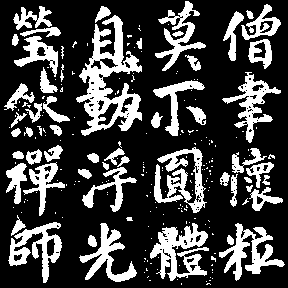 僧聿懷粒
莫不圓體
自動浮光
瑩然禪師